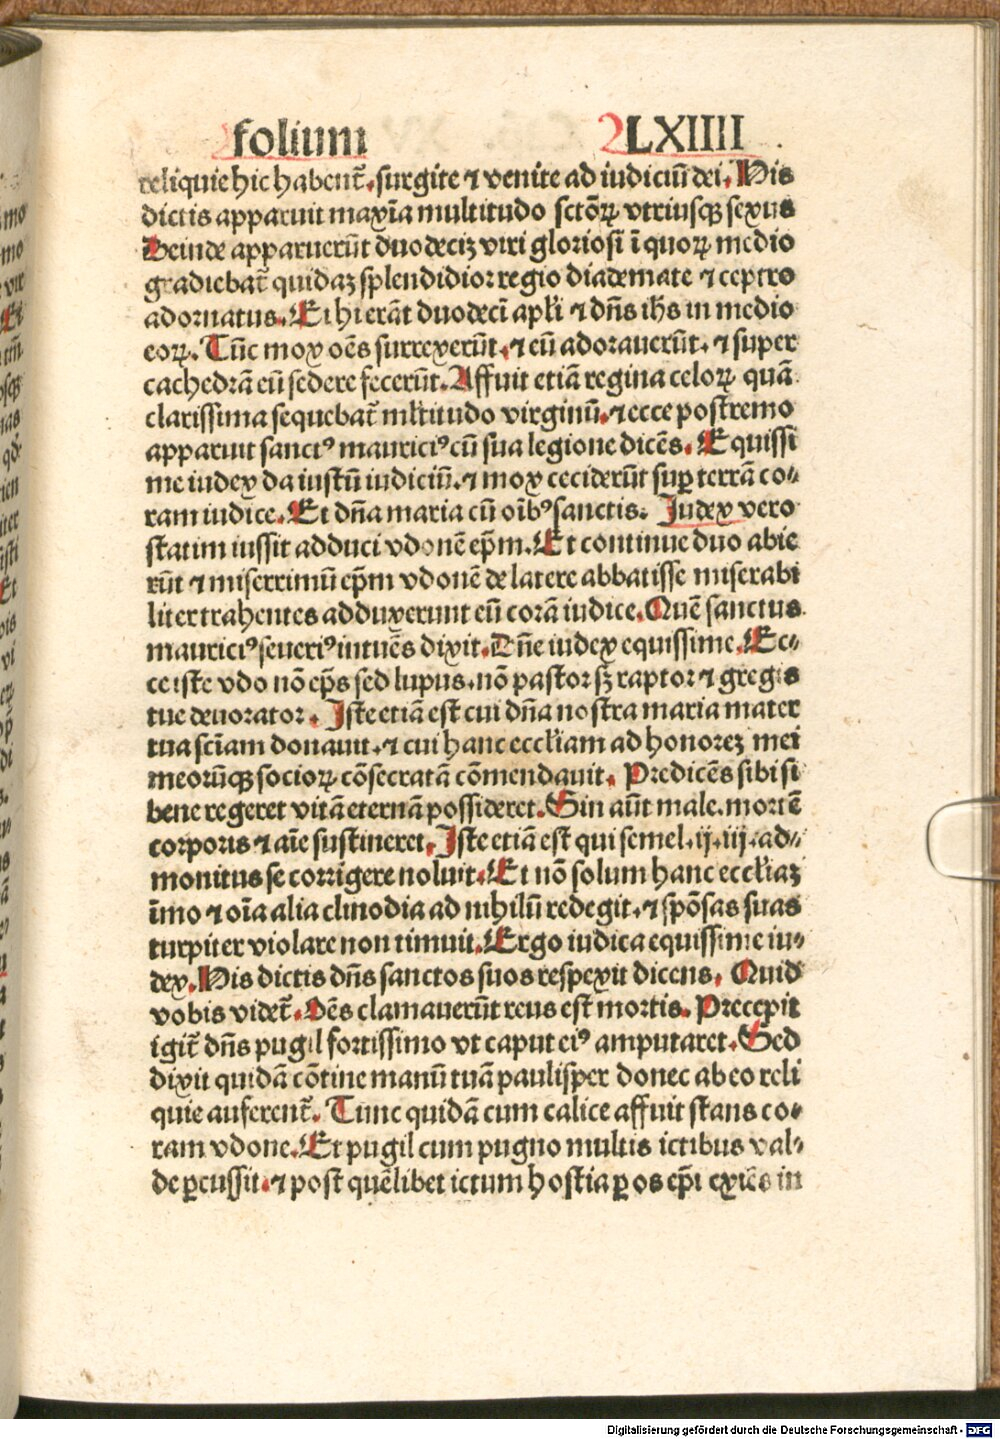 folium LXIIII
reliquie hic habent᷑. surgite ⁊ venite ad iudiciū dei. His
dictis apparuit maxīa multitudo sctōꝝ vtriusqꝫ sexus
Deinde apparuerūt duodeciꝫ viri gloriosi ī quoꝝ medio
gradiebat᷑ quidaꝫ splendidior regio diademate ⁊ ceptro
adornatus. Et hi erāt duodecī apl̄i ⁊ dn̄s ih̄s in medio
eoꝝ. Tūc mox oēs surrexerūt. ⁊ eū adorauerūt. ⁊ super
cathedrā eū sedere fecerūt. Affuit etiā regina celoꝝ quā
clarissima sequebat᷑ ml̄titudo virginū. ⁊ ecce postremo
apparuit sanctꝰ mauriciꝰ cū sua legione dicēs. Equissi
me iudex da iustū iudiciū. ⁊ mox ceciderūt suꝑ terrā co⸗
ram iudice. Et dn̄a maria cū oībꝰ sanctis. Judex vero
statim iussit adduci vdonē ep̄m. Et continue duo abie
rūt ⁊ miserrimū ep̄m vdonē de latere abbatisse miserabi
liter trahentes adduxerunt eū corā iudice. Quē sanctus
mauriciꝰ seueriꝰ intuēs dixit. Dn̄e iudex equissime. Ec⸗
ce iste vdo nō ep̄s sed lupus. nō pastor sꝫ raptor ⁊ gregis
tue deuorator. Iste etiā est cui dn̄a nostra maria mater
tua sciam donauit. ⁊ cui hanc eccl̄iam ad honoreꝫ mei
meorūqꝫ socioꝝ cōsecratā cōmendauit. Predicēs sibi si
bene regeret vitā eternā possideret. Sin aūt male. mortē
corporis ⁊ aīe sustineret. Iste etiā est qui semel. ij. iij. ad⸗
monitus se corrigere noluit. Et nō solum hanc eccl̄iaꝫ
īmo ⁊ oīa alia clinodia ad nihilū redegit. ⁊ spōsas suas
turpiter violare non timuit. Ergo iudica equissime iu⸗
dex. His dictis dn̄s sanctos suos respexit dicens. Quid
vobis videt᷑. Oēs clamauerūt reus est mortis. Precepit
igit᷑ dn̄s pugil fortissimo vt caput eiꝰ amputaret. Sed
dixit quidā cōtine manū tuā paulisper donec ab eo reli
quie auferent᷑. Tunc quidā cum calice affuit stans co⸗
ram vdone. Et pugil cum pugno multis ictibus val⸗
de ꝑcussit. ⁊ post quēlibet ictum hostia ꝑ os ep̄i exiēs in
Digitalisierung gefördert durch die Deutsche Forschungsgemeinschaft - DFG